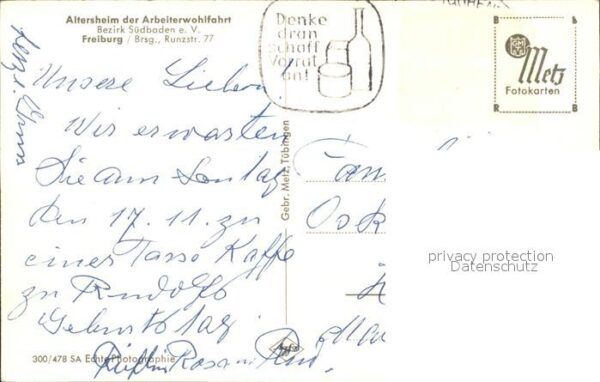 Altersheim der Arbeiterwohlfahrt
Bezirk Südbaden e. V.
Freiburg / Brsg., Runzstr. 77
Denke
dran
schaff
Vorrat
an!
B L
Metz
Fotokarten
R B
Unsere Lieben
Wir erwarten
Sie am Sontag
den 17. 11. zu
einer Tasse Kaffe
zu Rudolfs
Geburtstag.
Rosa
Gebr. Metz, Tübingen
Fam
Osk
privacy protection
Datenschutz
300/478 SA Echte Photographie
Agfa